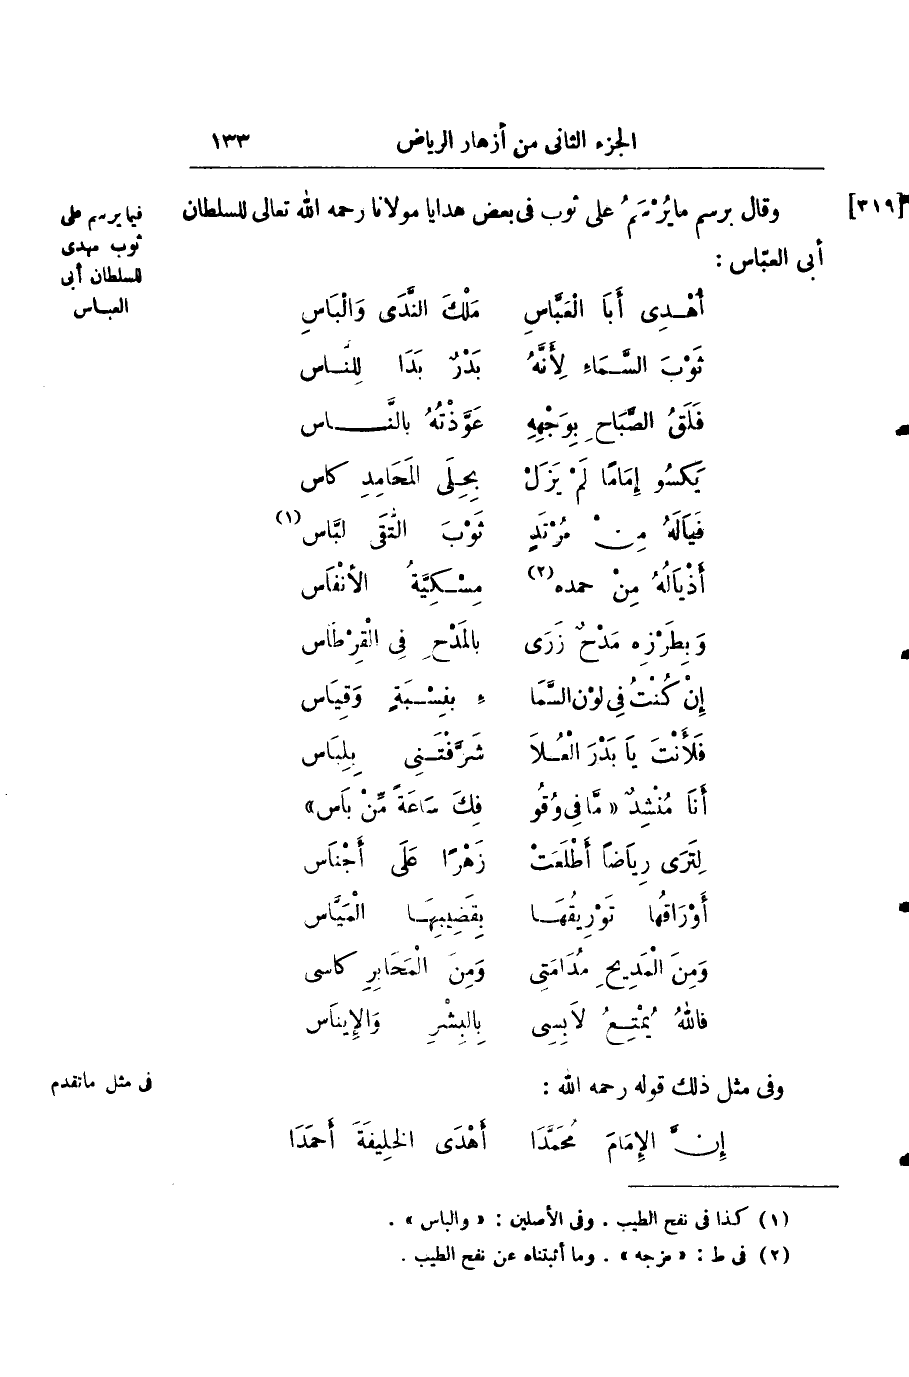 الجزء الثانى من أزهار الرياض ١٣٣
[٣١٩] وقال برسم ما يُرْسَمُ على ثوب فى بعض هدايا مولانا رحمه الله تعالى للسلطان
أبى العبّاس :
فيما يرسم على
ثوب مهدى
للسلطان أبى
العباس
أُهْــدِى أَبَا الْعَبَّاسِ مَلْكَ النَّدَى وَالْبَاسِ
ثَوْبَ السَّــمَاءِ لِأَنَّهُ بَدْرٌ بَدَا لِلنَّــاسِ
فَلَقُ الصَّبَاحِ بِوَجْهِهِ عَوَّذْتُهُ بالنَّـــــاس
يَكسُو إِمَامًا لَمْ يَزَلْ بِحِلَى المَحَامِدِ كاس
فَيَالَهُ مِنْ مُرْتَدٍ ثَوْبَ التُّقَى لبَّاس(١)
أَذْيَالُهُ مِنْ حمده(٢) مِسْــكِيَّةُ الأنْفَاس
وَبِطَرْزِه مَدْحٌ زَرَى بالمَدْحِ فِى الْقِرْطَاس
إِنْ كُنْتُ فِى لون السَّمَا ءِ بِنِسْــبَةٍ وَقِيَاس
فَلَأَنْتَ يَا بَدْرَ الْعُــلَا شَرَّفْتَــنِى بِلِبَاس
أَنَا مُنْشِدٌ « مَّا فِى وُقُو فِكَ سَاعَةً مِّنْ بَاس»
لِتَرَى رِيَاضاً أَطْلَعَتْ زَهْرًا عَلَى أَجْنَاس
أَوْرَاقُها تَوْرِيقُهَــا بِقَضِيبِهَــا الْمَيَّاس
وَمِنَ الْمَدِيحِ مُدَامَتِى وَمِنَ الْمَحَابِرِ كاسى
فاللهُ يُمْتِــعُ لاَبِسِى بِالبِشْرِ وَالإِينَاس
وفى مثل ذلك قوله رحمه الله :
فى مثل ماتقدم
إِنَّ الإِمَامَ مُحَمَّدَا أَهْدَى الخَلِيفَةَ أَحَمَدَا
(١) كذا فى نفح الطيب . وفى الأصلين : « والباس » .
(٢) فى ط : « مزجه » . وما أثبتناه عن نفح الطيب .